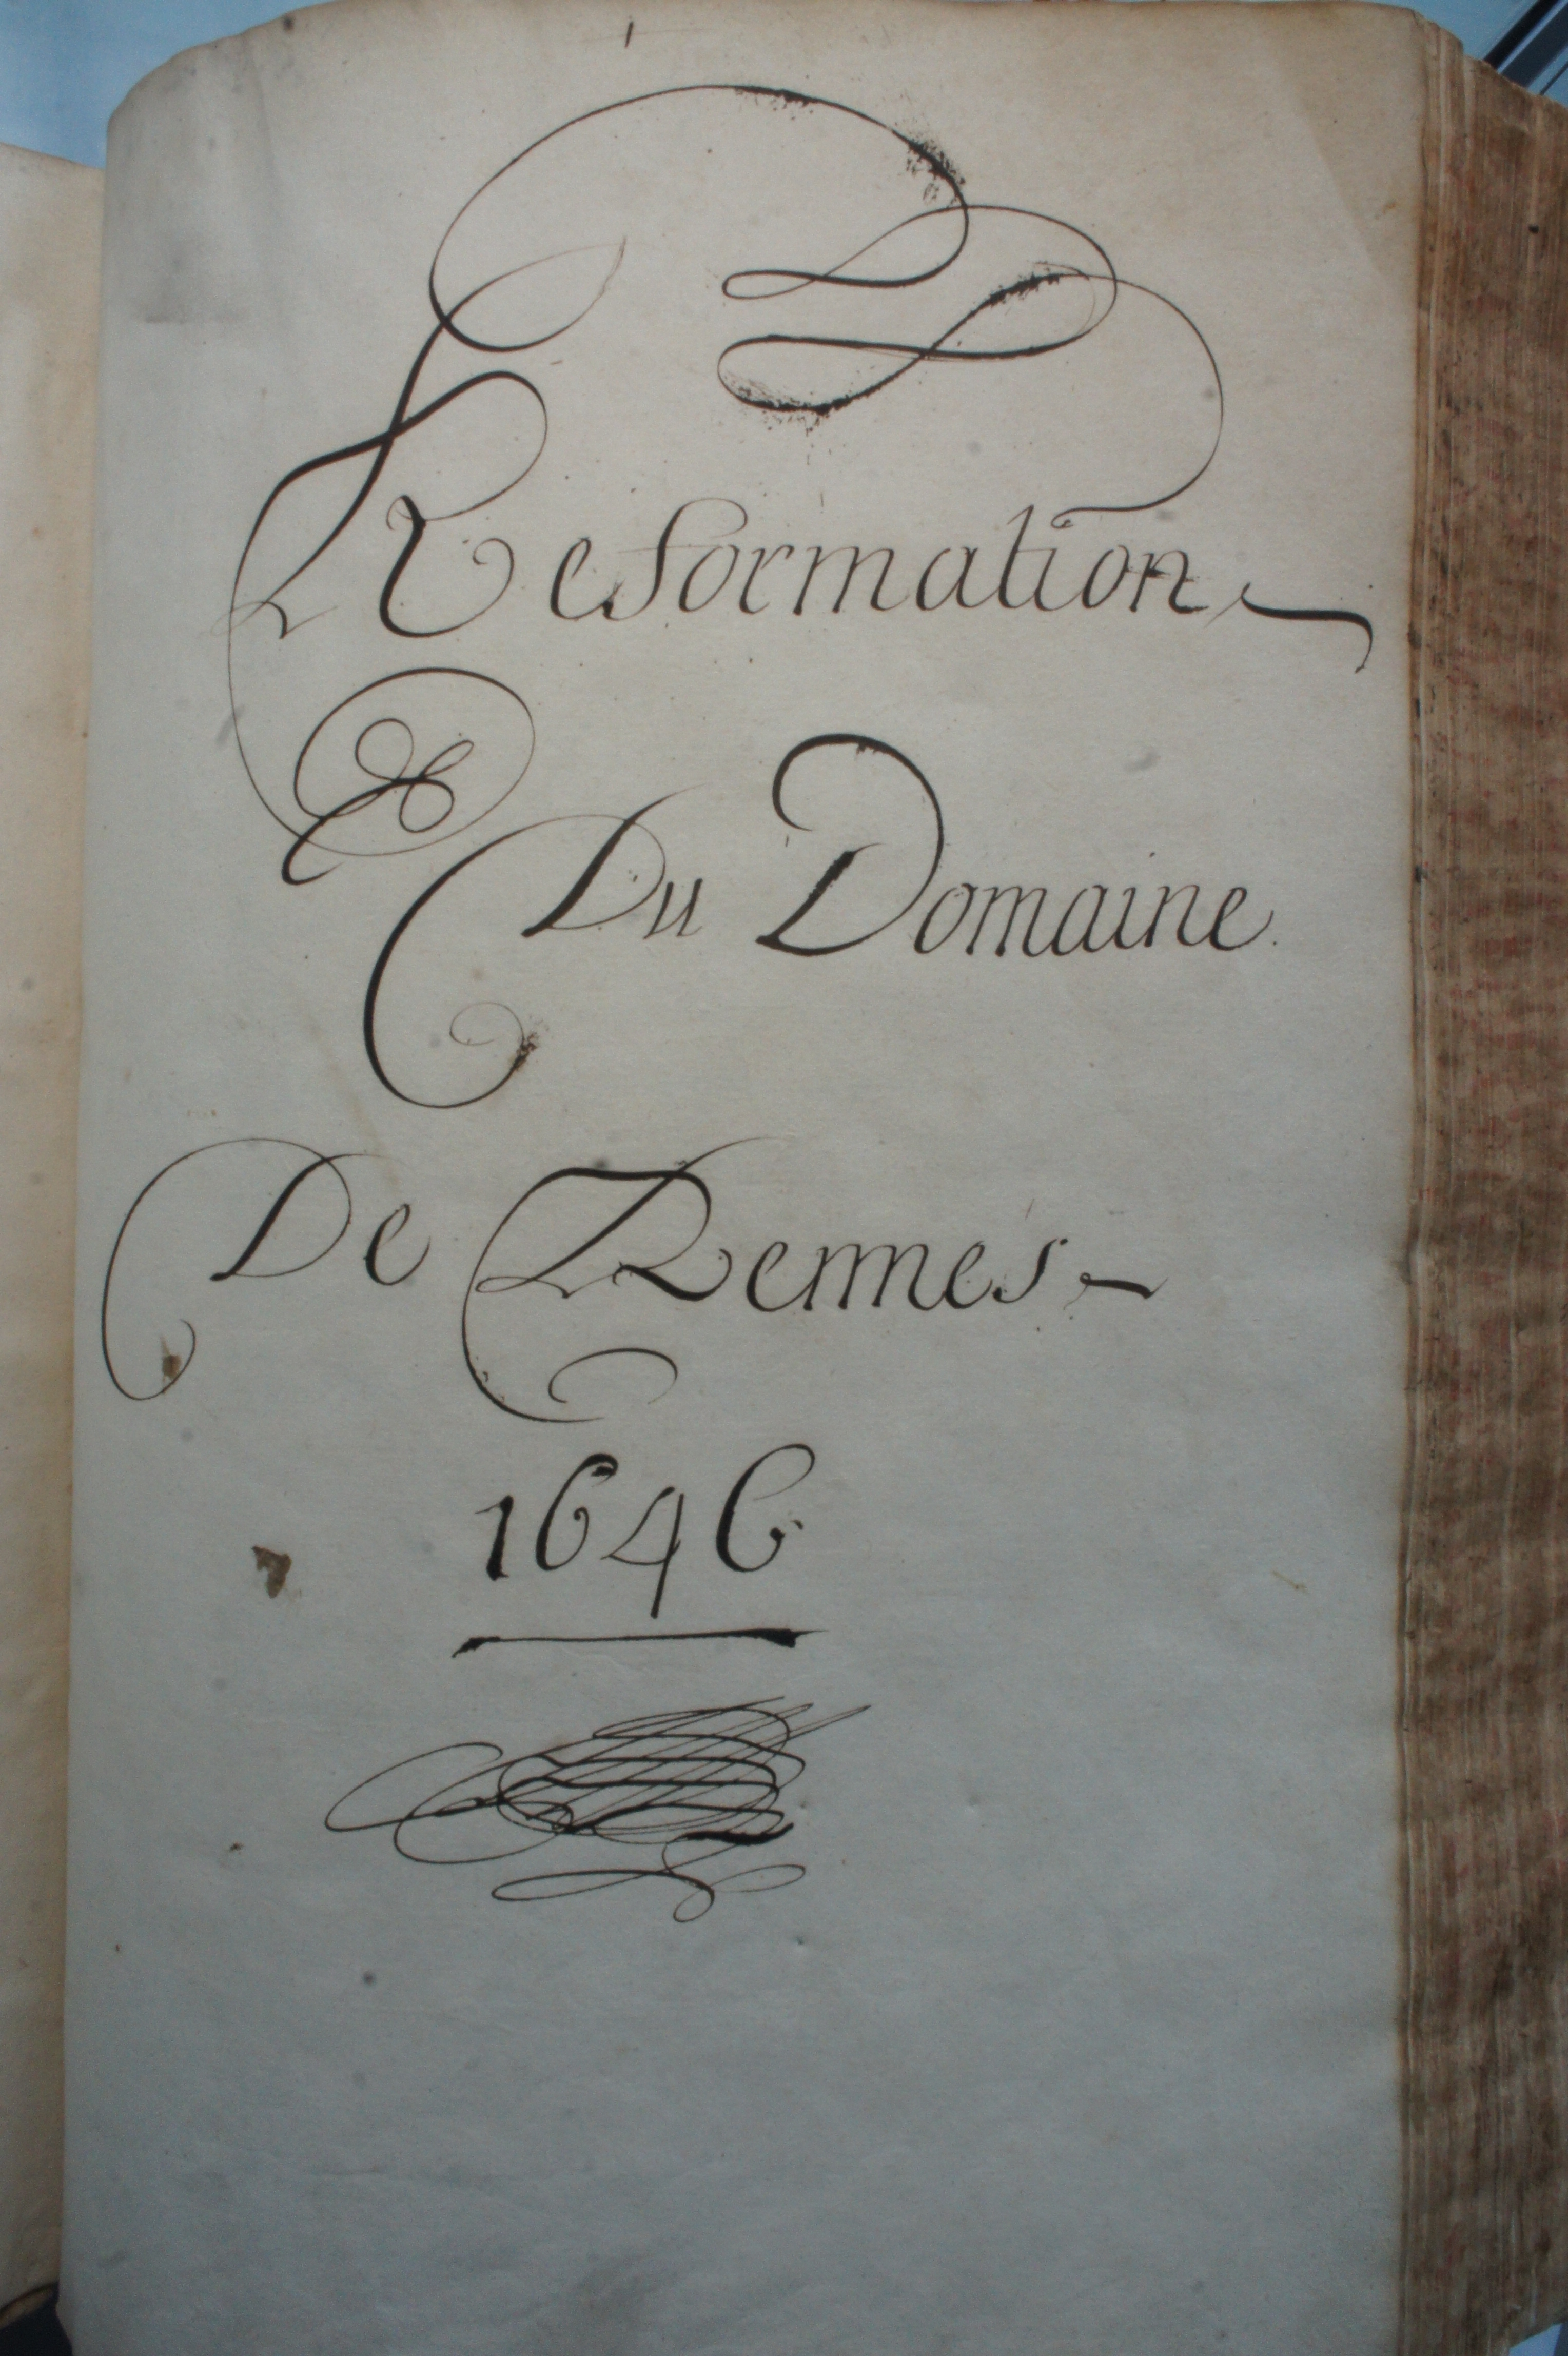 Reformation
Du Domaine.
De Rennes
1646